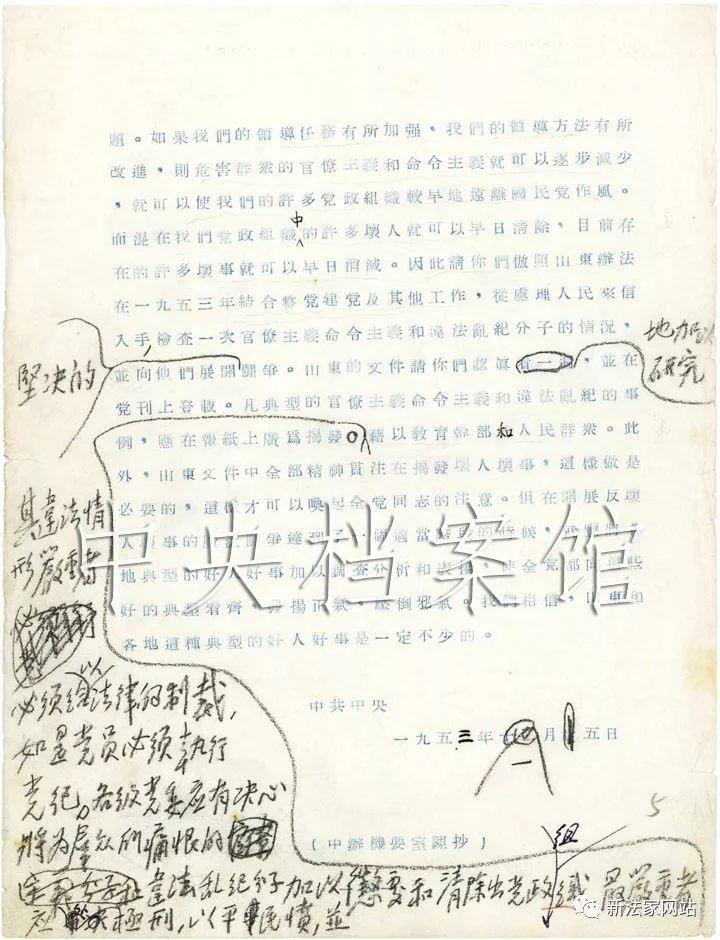 題。如果我們的領導任務有所加强，我們的領導方法有所
改進，則危害群眾的官僚主義和命令主義就可以逐步減少
，就可以使我們的許多党政組織較早地遠離國民党作風。
而混在我們党政組織中的許多壞人就可以早日清除，目前存
在的許多壞事就可以早日消滅。因此請你們倣照山東辦法
在一九五三年結合整党建党及其他工作，從處理人民來信
入手，檢查一次官僚主義命令主義和違法亂紀分子的情況，
並向他們展開鬥爭。山東的文件請你們認真看一遍，並在
党刊上登載。凡典型的官僚主義命令主義和違法亂紀的事
例，應在報紙上廣爲揭發。藉以教育幹部和人民群眾。此
外，山東文件中全部精神貫注在揭發壞人壞事，這樣做是
必要的，這樣才可以喚起全党同志的注意。但在開展反壞
人壞事的鬥爭達到了一個適當階段的時候，
地典型的好人好事加以調查分析和表揚，使全党都向這些
好的典型看齊，發揚正氣，壓倒邪氣。我們相信，山東和
各地這種典型的好人好事是一定不少的。
中共中央
一九五三年一月五日
（中辦機要室陳抄）
堅决的
地加以
研究
其違法情
形嚴重者
必須給以法律的制裁，
如是党員必須執行
党紀。各級党委應有决心
將為羣众所痛恨的
違法乱紀分子加以懲辦和清除出党政組織
最嚴重者
應处極刑，以平民憤，並
5
中央档案馆
新法家网站